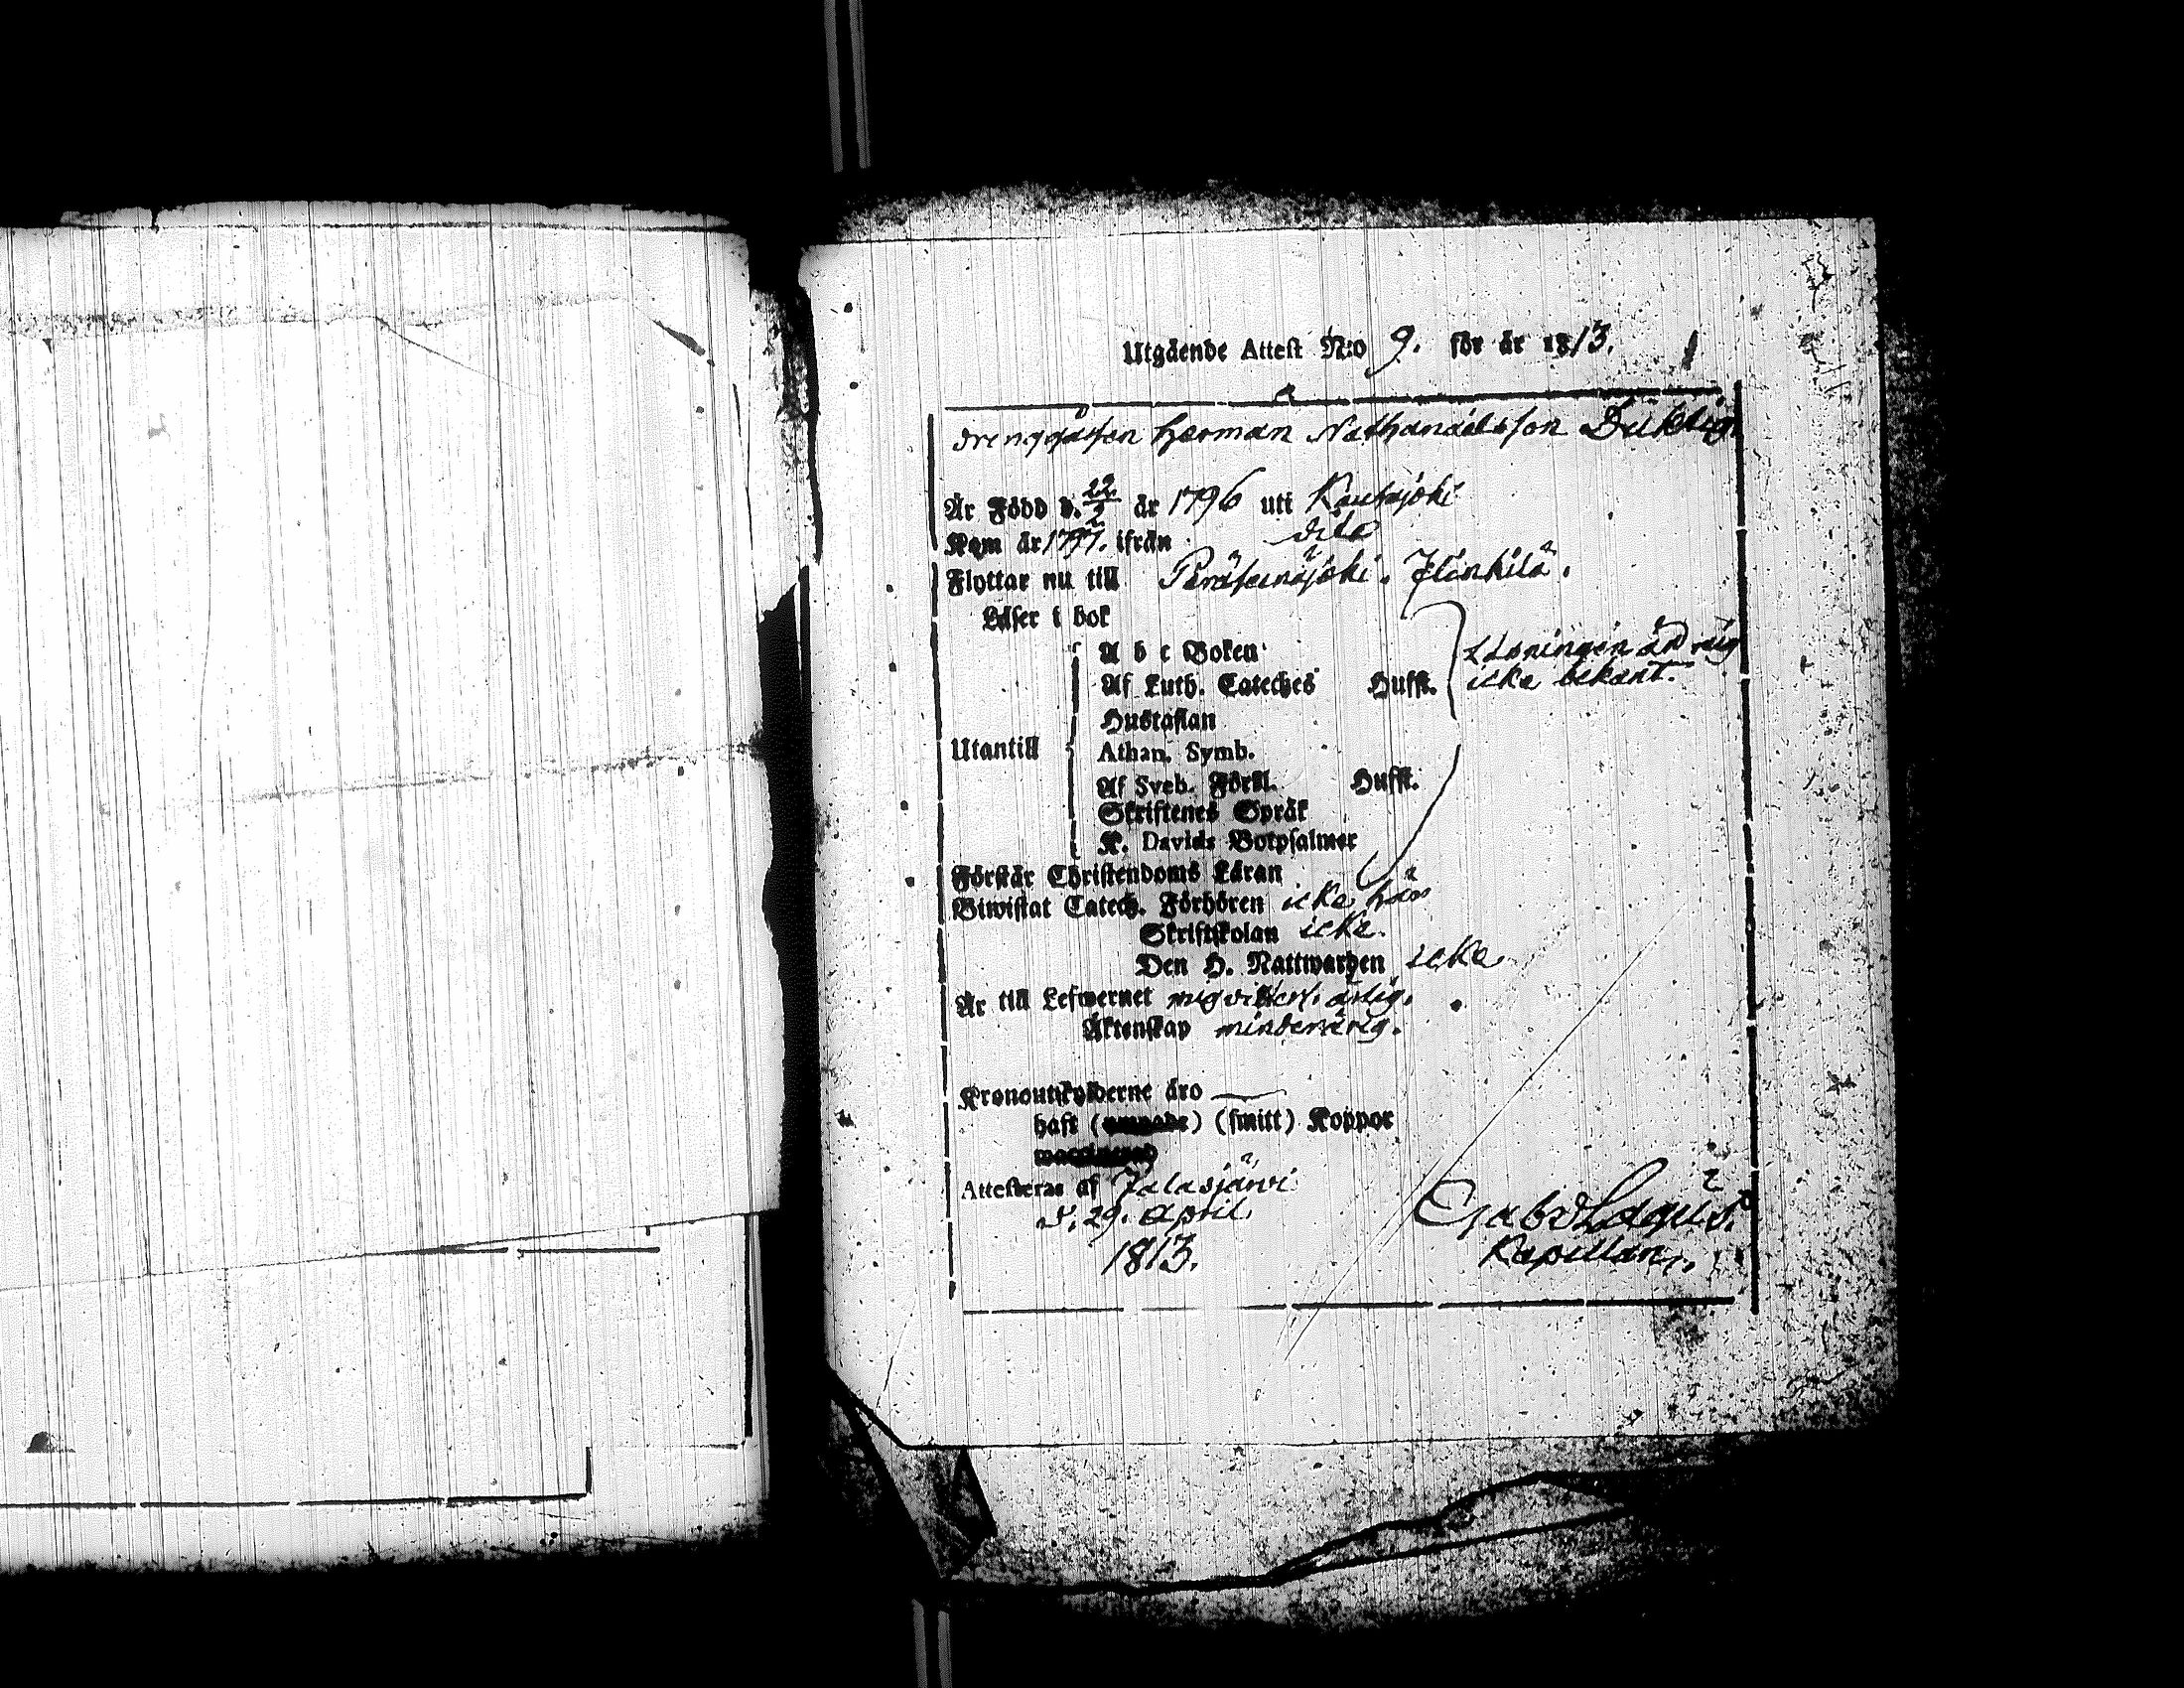 Utgående Attest N:o 9. för år 1813.
drenggåssen Herman Nathanaelsson Duktig.
Är Född d. 22/2 år 1796 uti Kauhajoki
Kom år 1797. ifrån dito
Flyttar nu till Peräseinäjoki. Flinkilä.
Läser i bok
A b c Boken
Läsningen är mig
Af Luth. Cateches Hufst. icke bekant.
Hustaflan
Utantill Athan. Symb.
Af Sveb. Förkl. Hufst.
Skriftenes Språk
K. Davids Botpsalmer
Förstår Christendoms Läran
Biwistat Catech. Förhören icke här
Skriftskolan icke.
Den H. Nattwarden icke
Är till Lefwernet mig vitterl. ärlig.
Äktenskap minderårig.
Kronoutskylderne äro
haft ( ) (smitt) Koppor
Attesteras af Jalasjärvi
d. 29. April
1813.
Gab. Lagus.
Kapellan.